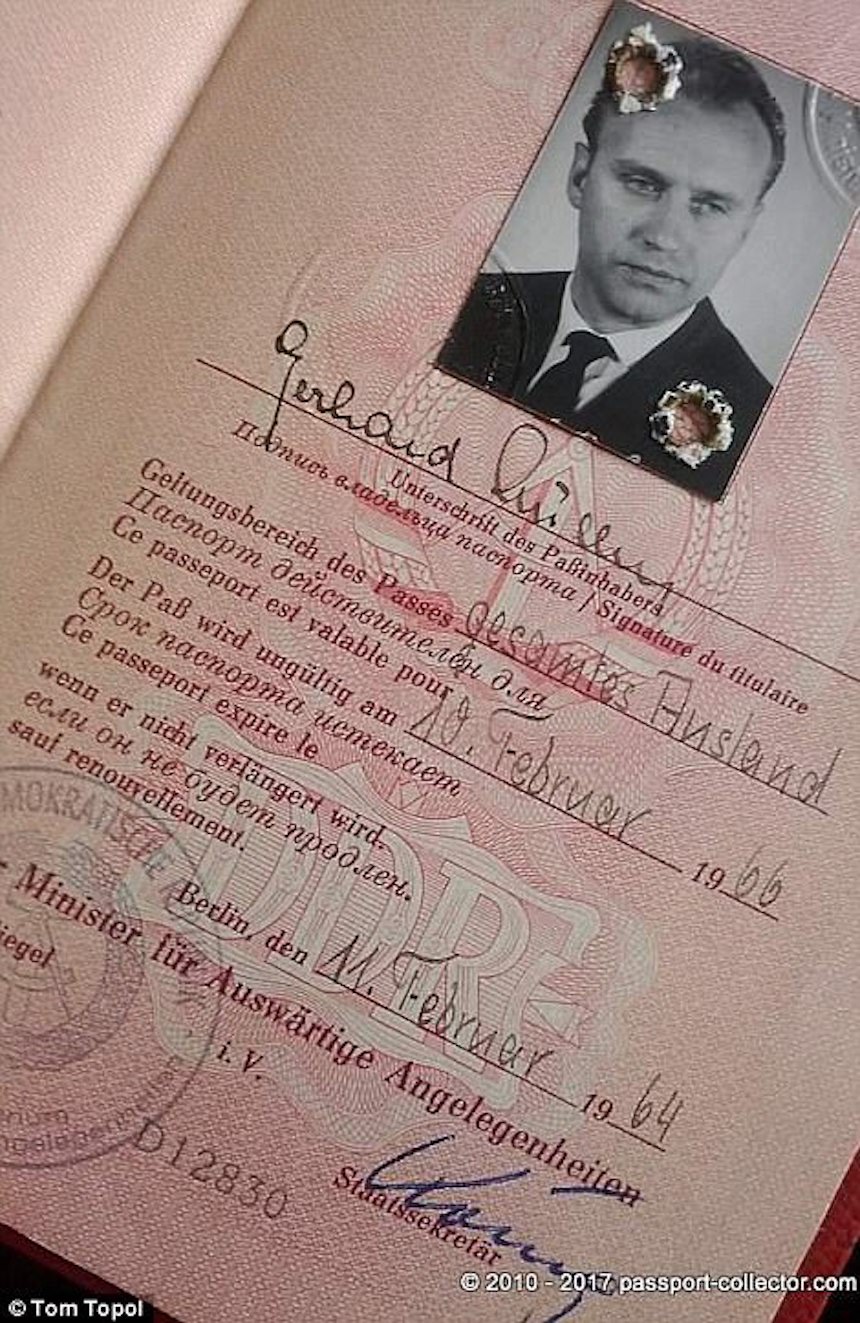 Gerhard
Unterschrift des Paßinhabers
Подпись владельца паспорта / Signature du titulaire
Geltungsbereich des Passes gesamtes Ausland
Паспорт действителен для
Ce passeport est valable pour
Der Paß wird ungültig am 10. Februar 1966
Срок паспорта истекает
Ce passeport expire le
wenn er nicht verlängert wird.
если он не будет продлен.
sauf renouvellement.
DDR
MOKRATISCHE
Berlin, den 11. Februar 1964
r Minister für Auswärtige Angelegenheiten
iegel
i. V.
D12830
Staatssekretär
© 2010 - 2017 passport-collector.com
© Tom Topol